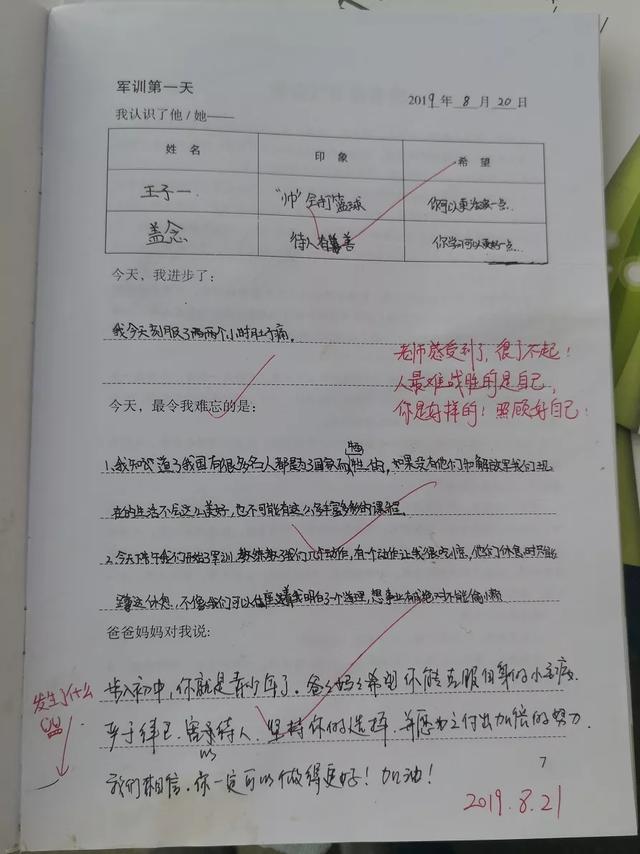 军训第一天
2019年 8 月 20 日
我认识了他/她——
姓 名 印 象 希 望
王子一 "帅" 会打篮球 你可以更活泼一点.
盖念 待人善 你学习可以更好一点...
今天，我进步了：
我今天克服了两个小时肚子痛.
老师感受到了，很了不起！
人最难战胜的是自己，
你是好样的！照顾好自己！
今天，最令我难忘的是：
1.我知道了我国有很多名人都是为了国家而牺牲的，如果没有他们和解放军我们现
在的生活不会这么美好，也不可能有这么丰富多彩的课程.
2.今天下午我们开始了军训，教练教了我们几个动作，有一个动作让我很吃惊，他们休息时只能
这休息，不像我们可以我明白了一个道理，想事业有成绝对不能偷小懒
爸爸妈妈对我说：
发生了什么
步入初中，你就是青少年了。爸爸妈妈希望你能克服自身的小毛病，
严于律己，宽以待人，坚持你的选择，并愿为之付出加倍的努力.
我们相信，你一定可以做得更好！加油！
7
2019.8.21